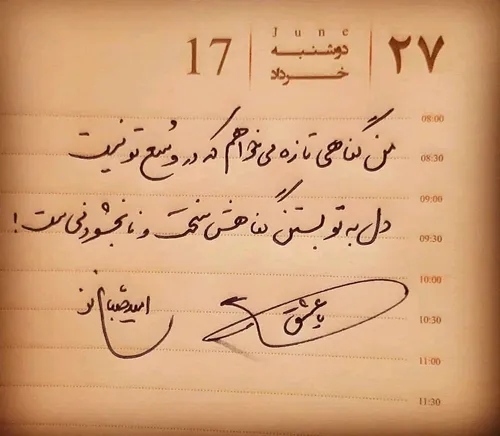 June
۲۷ دوشنبه 17
خرداد
08:00
من گناهی تازه می‌خواهم که در وسع تو نیست
08:30
09:00
دل به تو بستن گناهش سخت و نابخشودنی ست !
09:30
10:00
با عشق امید صباغ نو
10:30
11:00
11:30